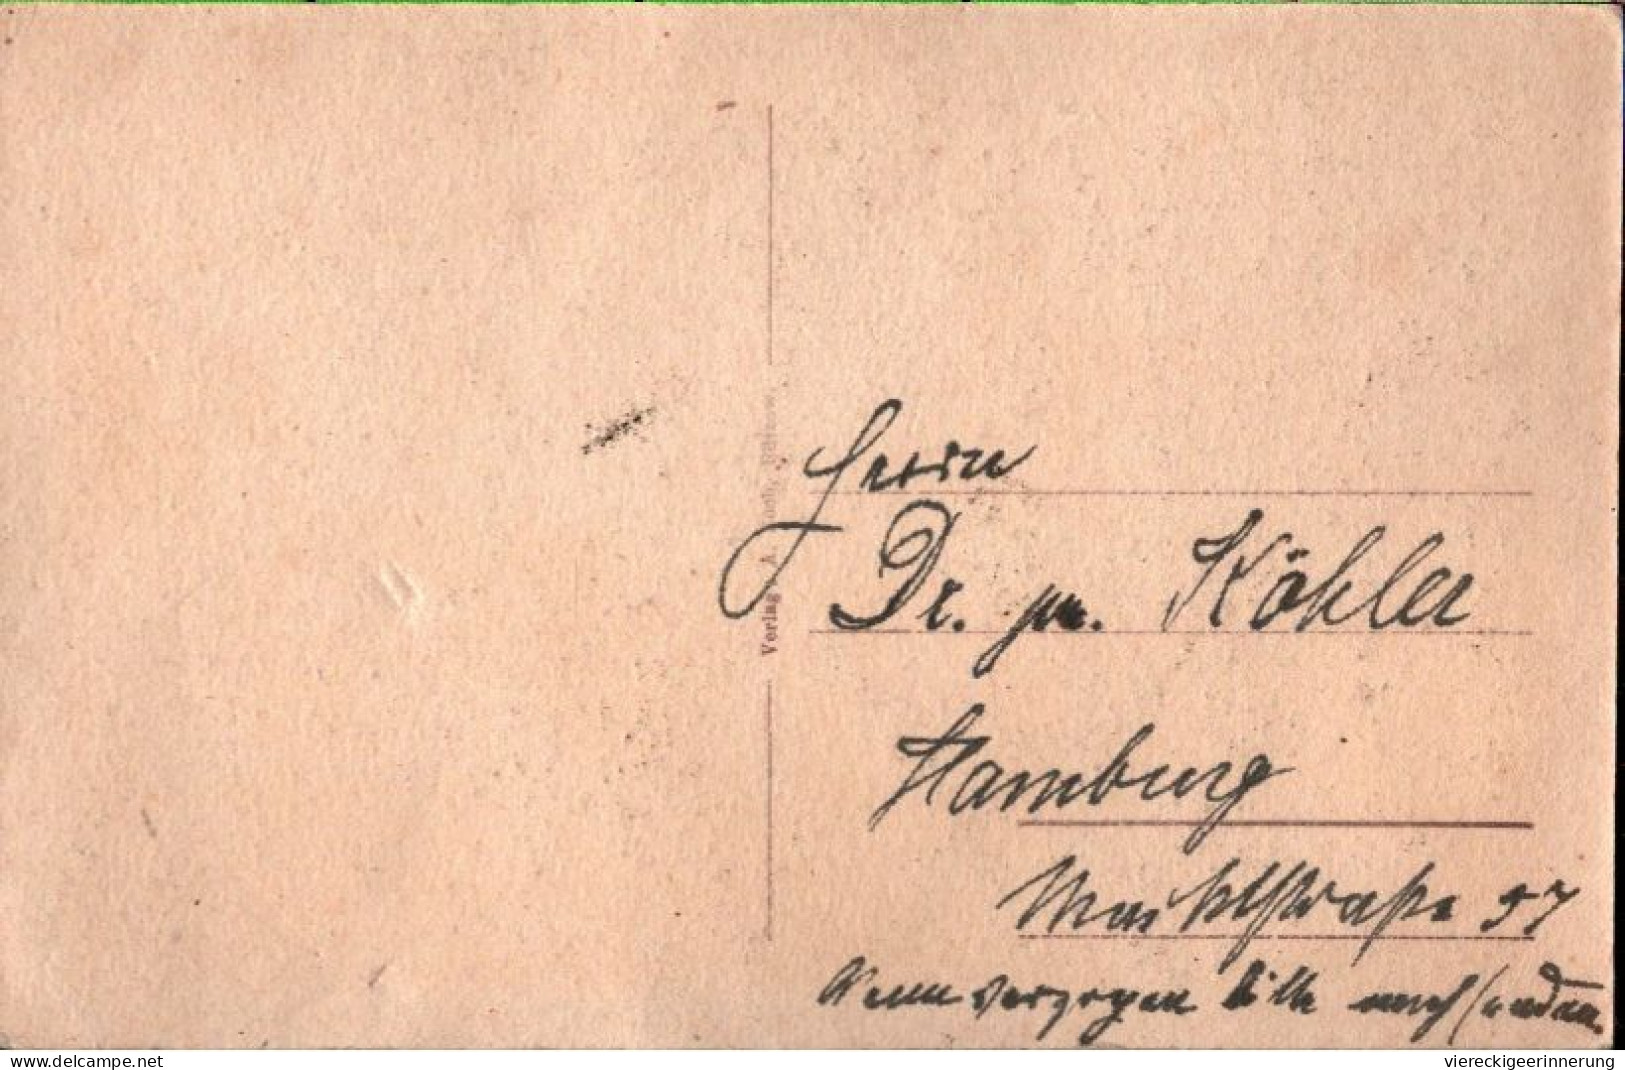 Herrn
Dr. jur. Köhler
Hamburg
Marktstraße 57
Wenn verzogen bitte nachsenden.
Verlag
delcampe.net
viereckigeerinnerung